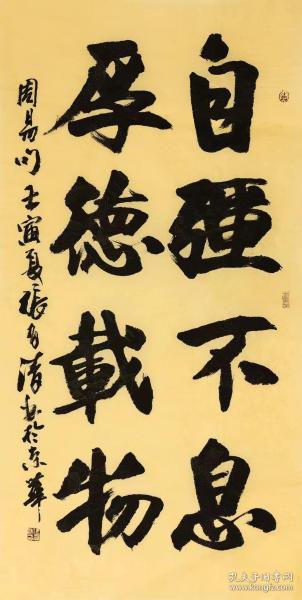 自彊不息
厚德載物
周易句壬寅夏張有清書於京華
孔夫子旧书网